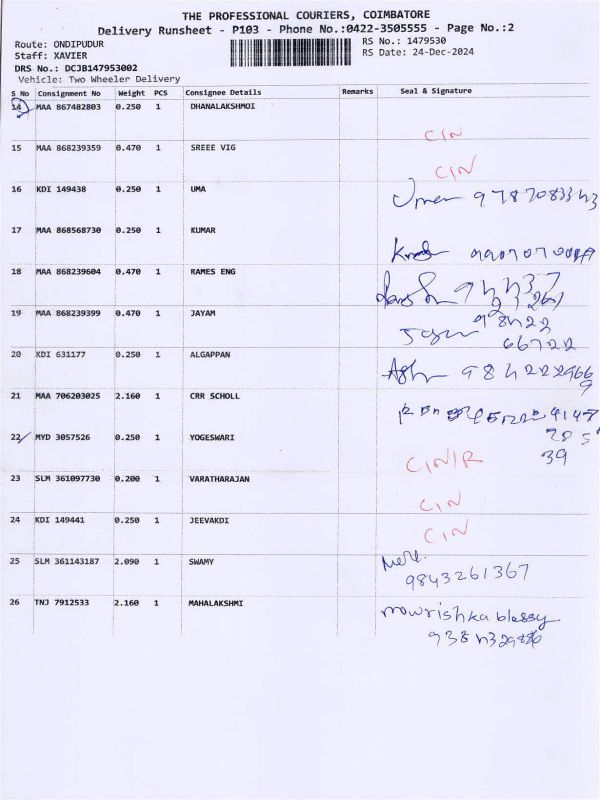 THE PROFESSIONAL COURIERS, COIMBATORE
Delivery Runsheet - P103 - Phone No.:0422-3505555 - Page No.:2
Route: ONDIPUDUR
RS No.: 1479530
Staff: XAVIER
RS Date: 24-Dec-2024
DRS No.: DCJB147953002
Vehicle: Two Wheeler Delivery
S No Consignment No Weight PCS Consignee Details Remarks Seal & Signature
14 MAA 867482803 0.250 1 DHANALAKSHMOI
CIN
15 MAA 868239359 0.470 1 SREEE VIG
CIN
16 KDI 149438 0.250 1 UMA
17 MAA 868568730 0.250 1 KUMAR
18 MAA 868239604 0.470 1 RAMES ENG
19 MAA 868239399 0.470 1 JAYAM
66722
20 KDI 631177 0.250 1 ALGAPPAN
21 MAA 706203025 2.160 1 CRR SCHOLL
22 MYD 3057526 0.250 1 YOGESWARI
39
CIN/R
23 SLM 361097730 0.200 1 VARATHARAJAN
CIN
24 KDI 149441 0.250 1 JEEVAKDI
CIN
25 SLM 361143187 2.090 1 SWAMY
9843261367
26 TNJ 7912533 2.160 1 MAHALAKSHMI
mowrishka blessy